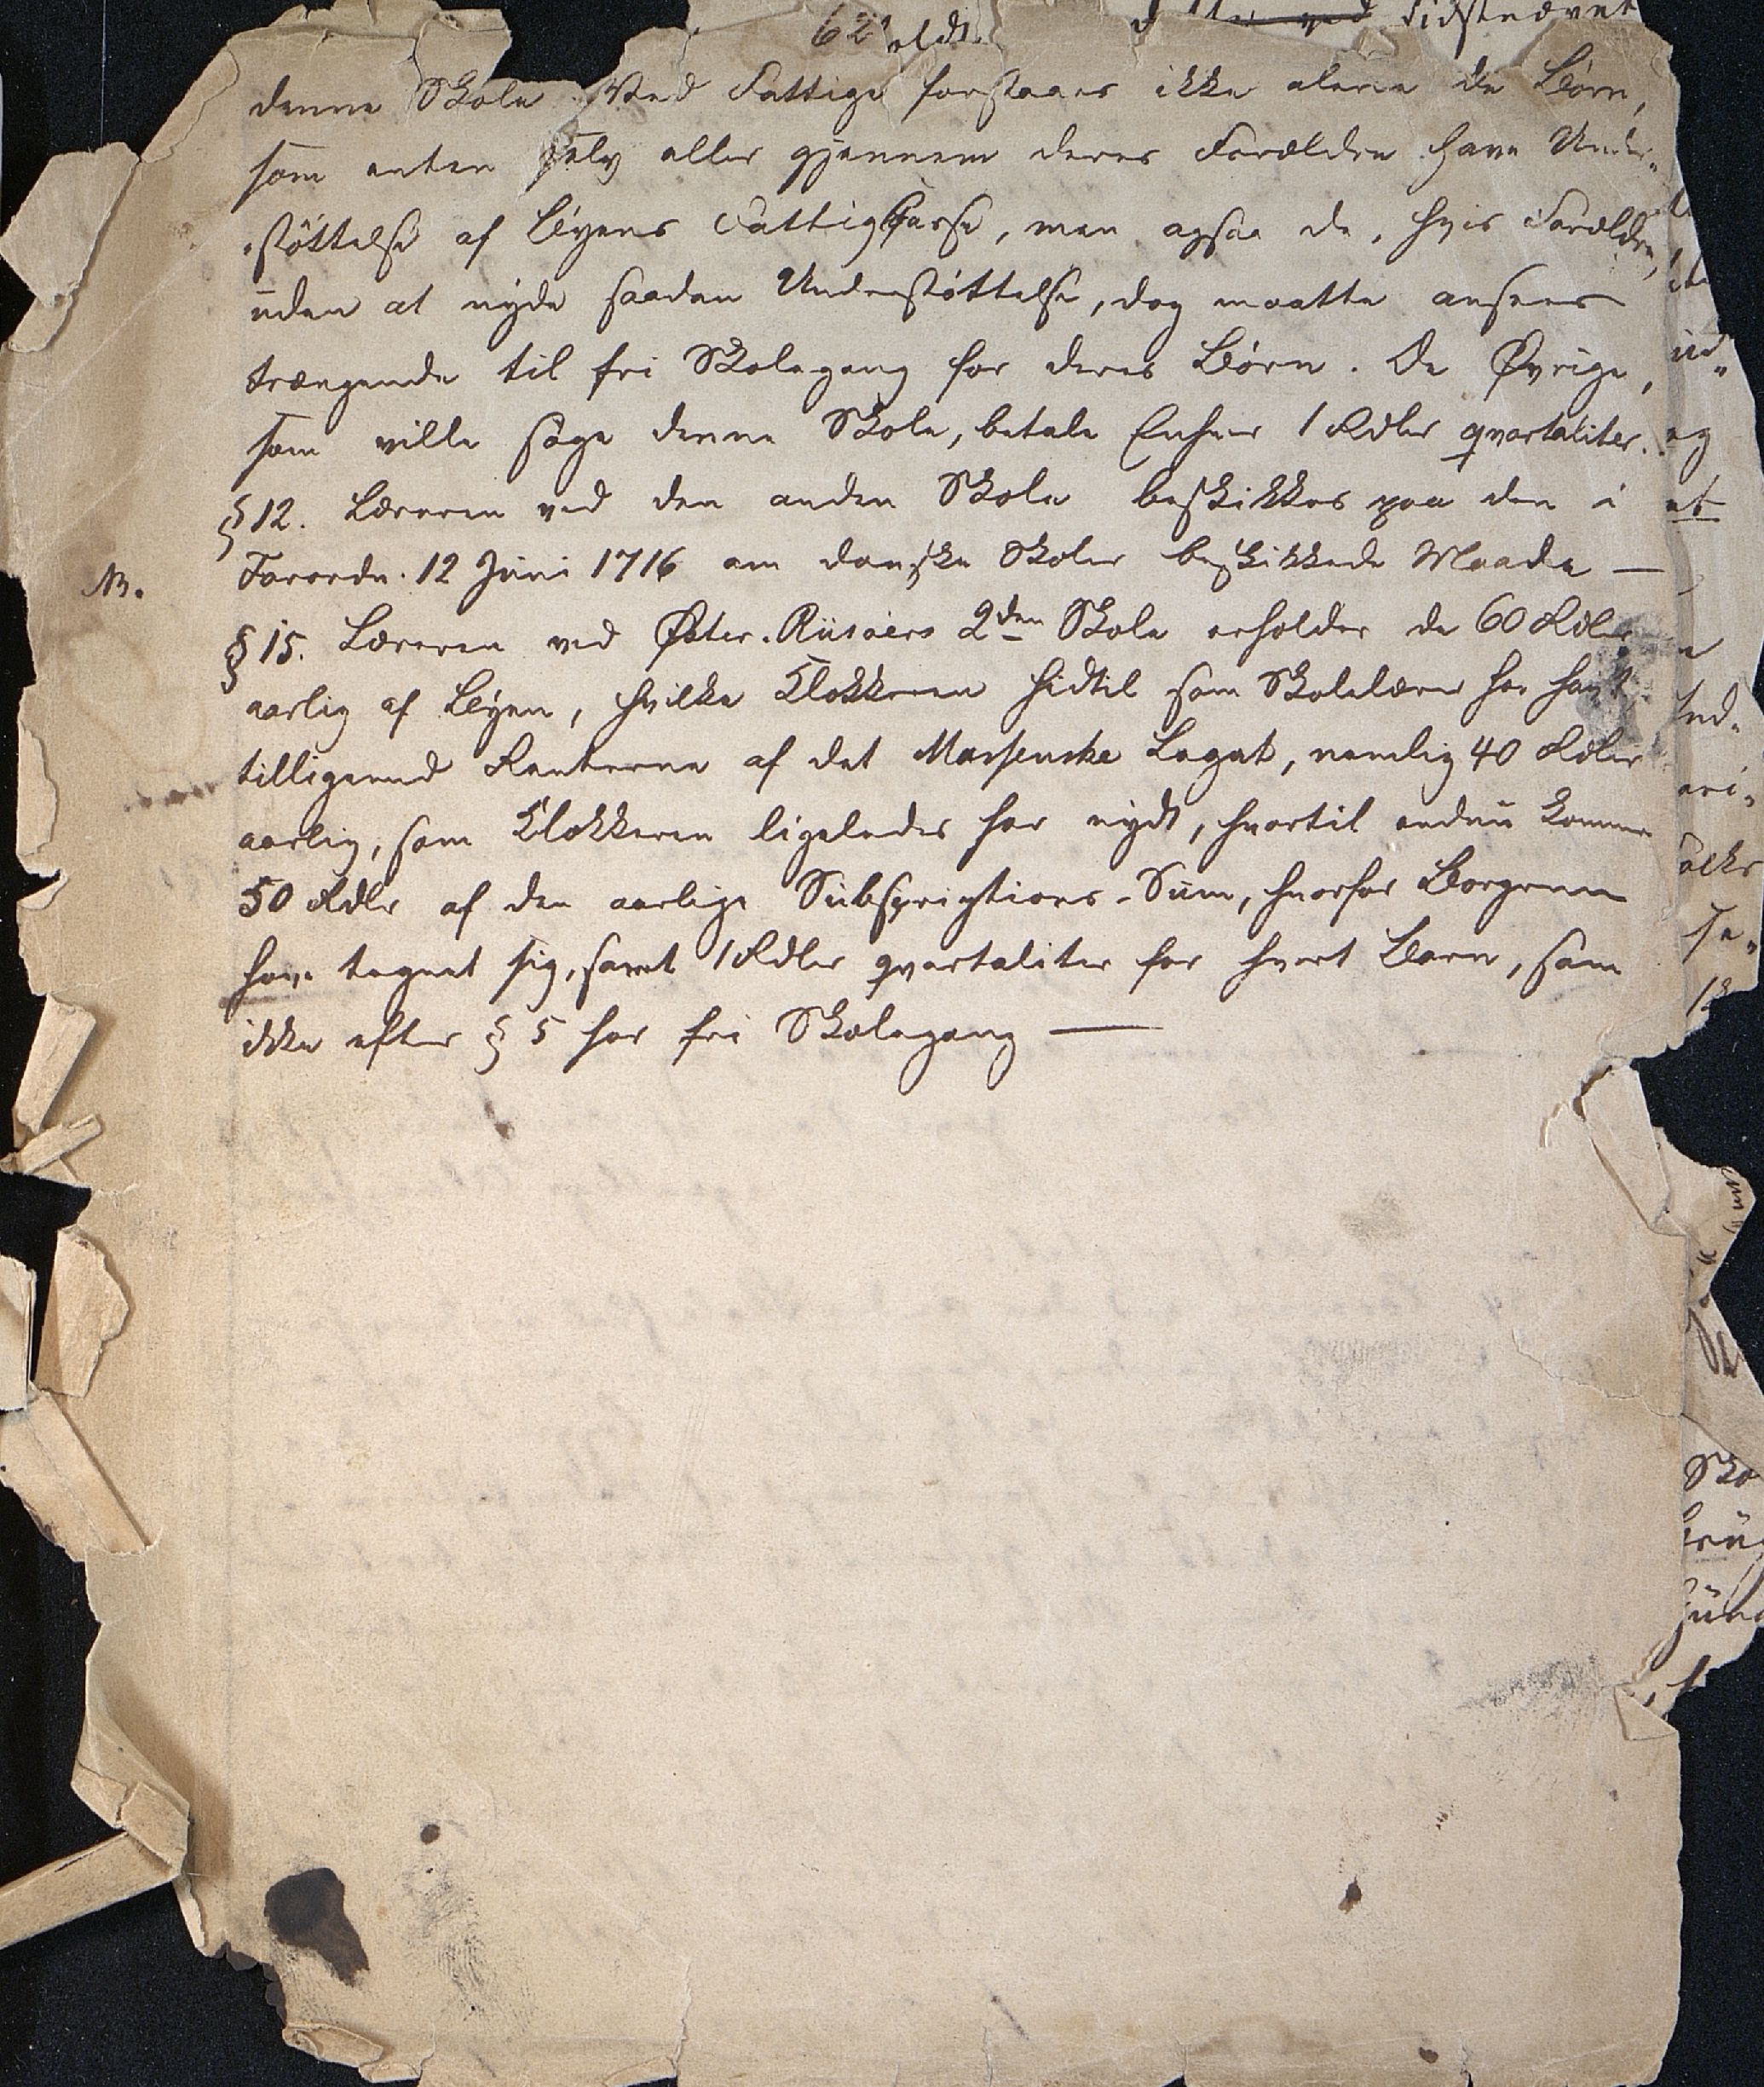 62
sidstnævnt
denne Skole. Ved Fattige forstaaes ikke alene de Börn,
som enten selv eller gjennem deres Forældre have Under-
støttelse af Byens Fattigkasse, men ogsaa de, hvis Forældre,
uden at nyde saadan Understøttelse, dog maatte ansees
trængende til fri Skolegang for deres Börn. De Øvrige,
som ville søge denne Skole, betale Enhver 1 Rdlr qvartaliter.
§ 12. Læreren ved den anden Skole beskikkes paa den i
NB. Forordn. 12 Juni 1716 om danske Skoler beskikkede Maade —
§ 15. Læreren ved Øster-Riisöers 2den Skole erholder de 60 Rdlr
aarlig af Byen, hvilke Klokkeren hidtil som Skolelærer har havt
tilligemed Renterne af det Marsenske Legat, nemlig 40 Rdlr
aarlig, som Klokkeren ligeledes har nydt, hvortil endnu komme
50 Rdlr af den aarlige Subscriptions-Sum, hvorfor Borgerne
have tegnet sig, samt 1 Rdlr qvartaliter for hvert Barn, som
ikke efter § 5 har fri Skolegang —